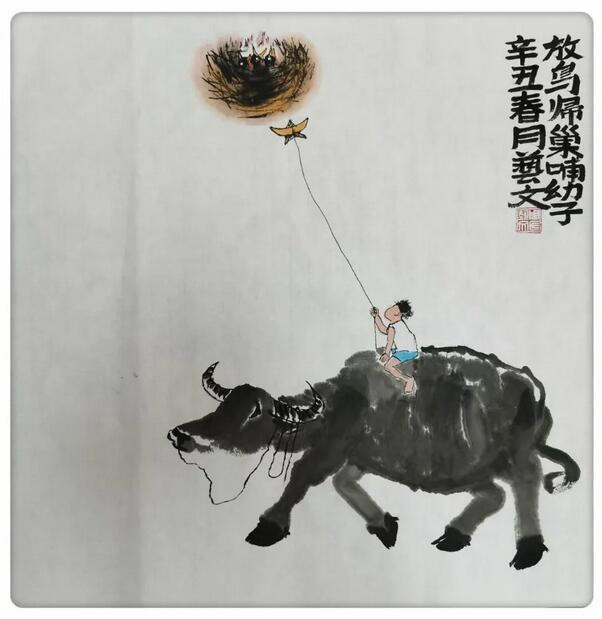 放鸟帰巢哺幼子
辛丑春月藝文